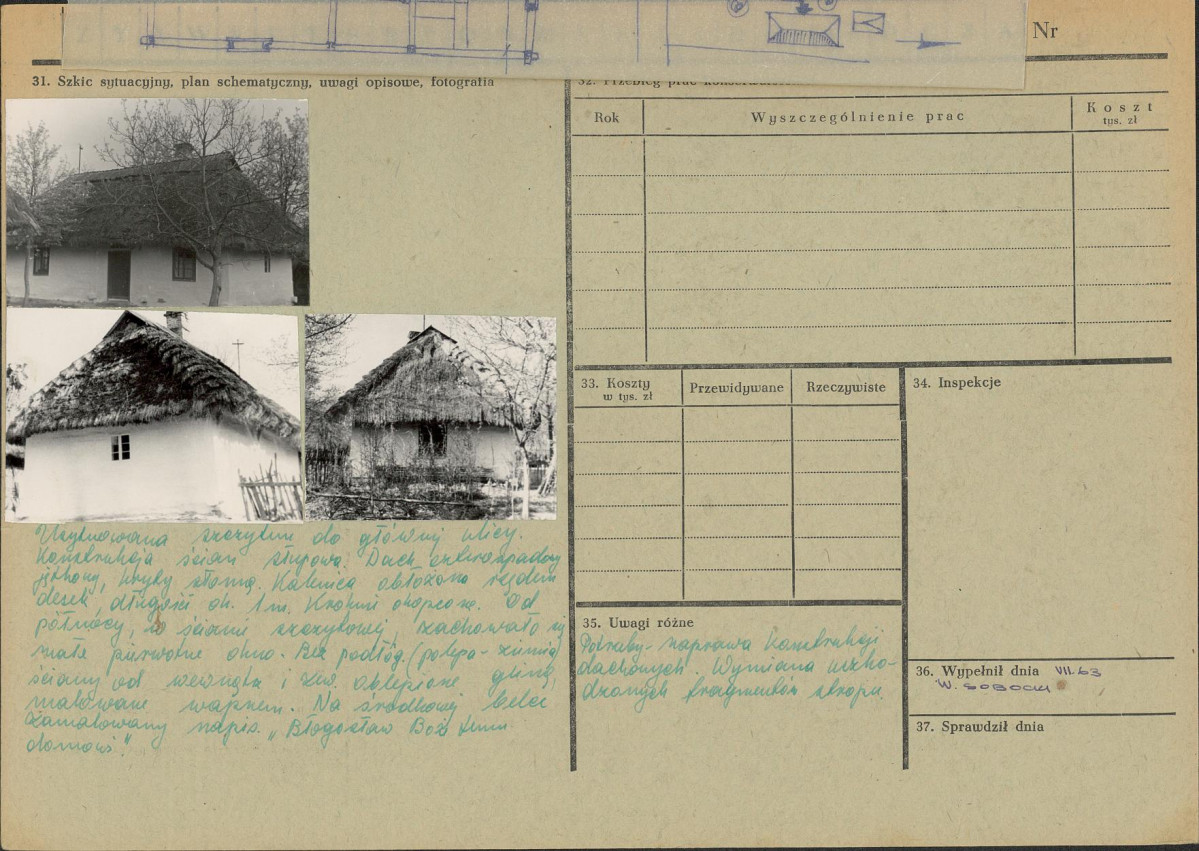 Nr
31. Szkic sytuacyjny, plan schematyczny, uwagi opisowe, fotografia
Usytuowana szczytem do głównej ulicy.
Konstrukcja ścian słupowa. Dach czterospadowy
kryty słomą. Kalenica obłożona rzędem
desek, długość ok. 1 m. Krokwie okopcone. Od
północy, w ścianie szczytowej, zachowało się
małe pierwotne okno. Bez podłóg. (polepa-
ściany od wewnątrz i zew. oblepione gliną,
malowane wapnem. Na środkowej belce
zamalowany napis. „Błogosław Boże temu
domowi."
32. Przebieg prac
Rok
Wyszczególnienie prac
Koszt
tys. zł
33. Koszty
w tys. zł
Przewidywane
Rzeczywiste
34. Inspekcje
35. Uwagi różne
Potrzeby- naprawa konstrukcji
dachowych. Wymiana uszko-
dzonych fragmentów stropu.
36. Wypełnił dnia VII.63
37. Sprawdził dnia